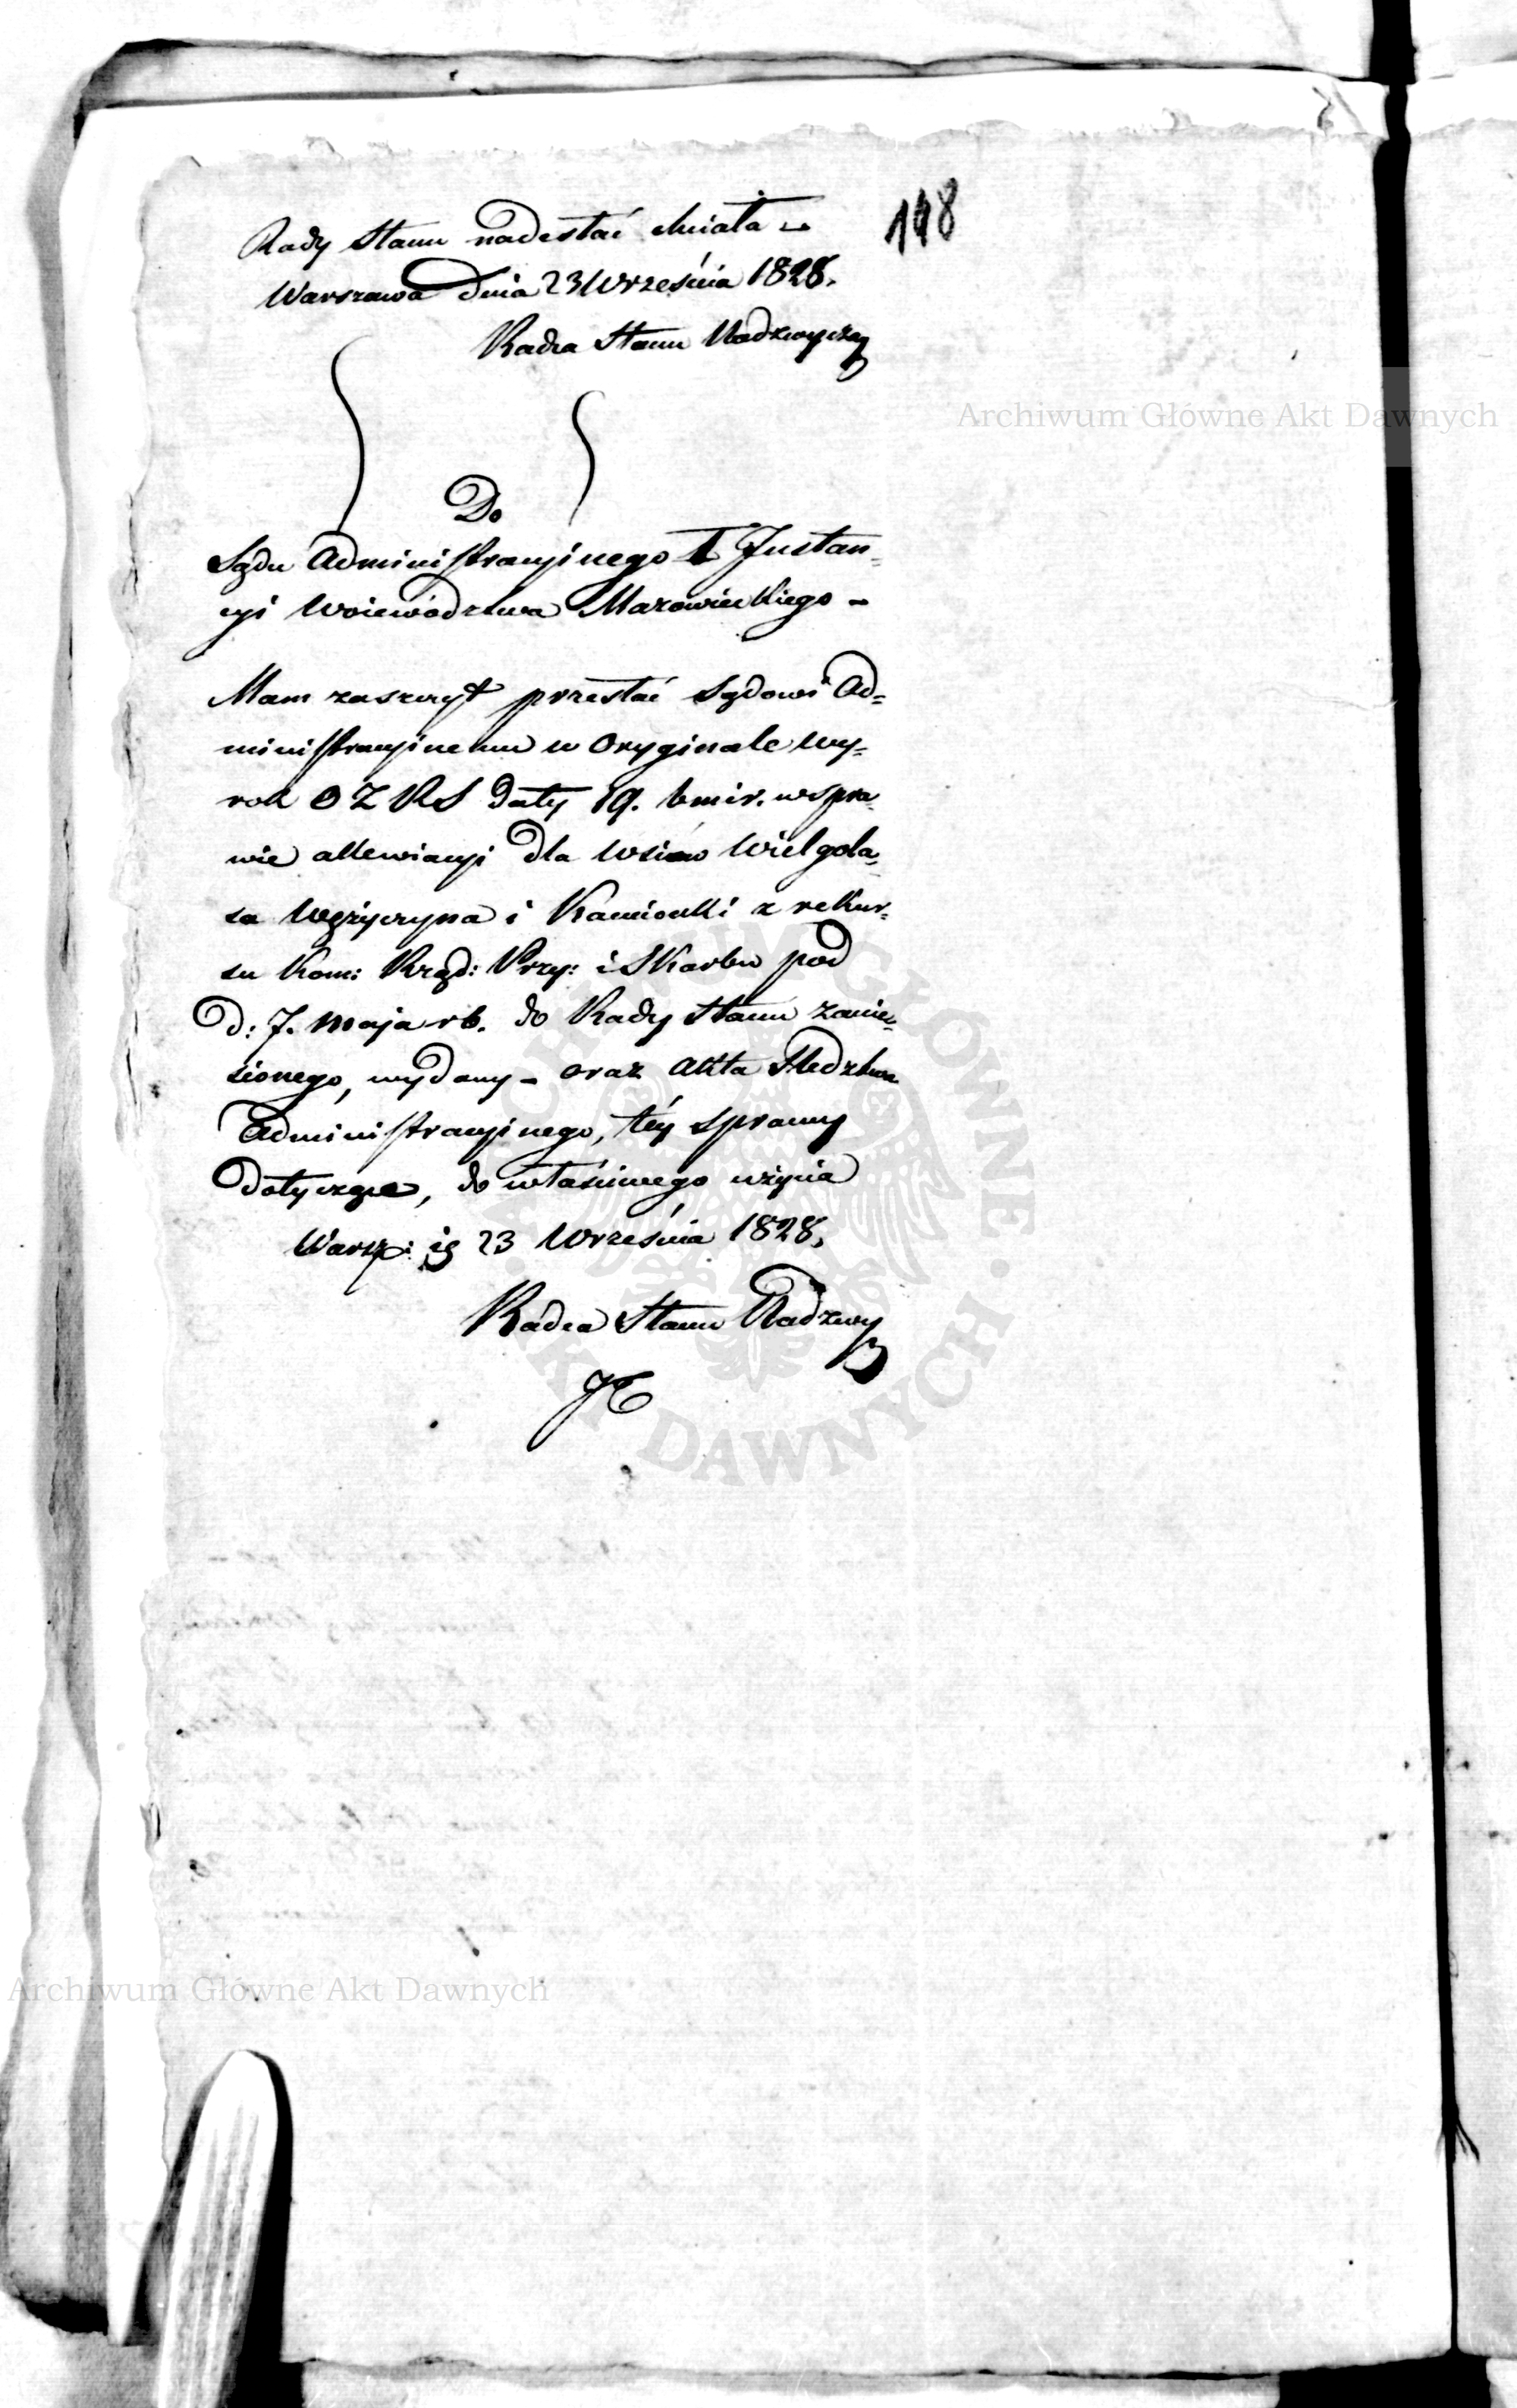 148
Rady Stanu nadesłać chciała –
Warszawa dnia 23 Września 1828.
Radca Stanu Nadzwyczaj
Do
Sądu Administracyjnego I Instan=
cyi Woiewództwa Mazowieckiego –
Mam zaszczyt przesłać Sądowi Ad=
ministracyjnemu w Oryginale wy=
rok OZRS daty 19. bmir. w spra
wie allewiacyi dla Wsiów Wielgola=
sa Wężyczyna i Kamionki z rekur=
su Kom: Rząd: Przy: i Skarbu pod
d: 7. Maja rb. do Rady Stanu zanie=
sionego, wydany – oraz Akta Śledztwa
Administracyjnego, téy sprawy
dotyczące, do właściwego użycia
Warsz: 23 Września 1828.
Radca Stanu Nadzwy
Archiwum Główne Akt Dawnych
ARCHIWUM GŁÓWNE · AKT DAWNYCH ·
Archiwum Główne Akt Dawnych